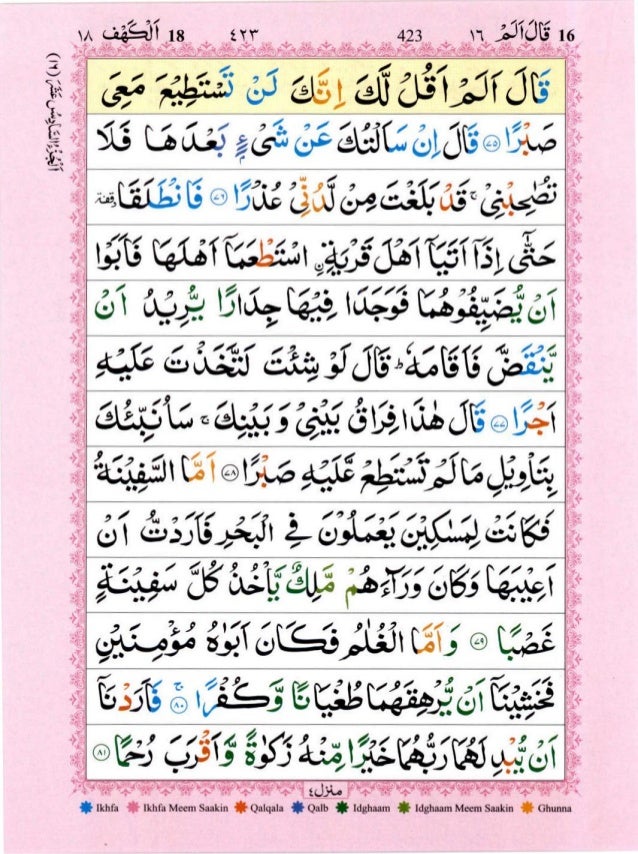 16 قَالَ اَلَمْ ١٦ 423 ٤٢٣ 18 اَلْكَهْف ١٨
اَلْجُزْءُ السَّادِسُ عَشَرَ (١٦)
قَالَ اَلَمْ اَقُلْ لَّكَ اِنَّكَ لَنْ تَسْتَطِيْعَ مَعِىَ
صَبْرًا ﴿٧٥﴾ قَالَ اِنْ سَاَلْتُكَ عَنْ شَىْءٍۢ بَعْدَهَا فَلَا
تُصٰحِبْنِىْ ۚ قَدْ بَلَغْتَ مِنْ لَّدُنِّىْ عُذْرًا ﴿٧٦﴾ فَانْطَلَقَا وقفة
حَتّٰٓى اِذَآ اَتَيَآ اَهْلَ قَرْيَةِ ۟اسْتَطْعَمَآ اَهْلَهَا فَاَبَوْا
اَنْ يُّضَيِّفُوْهُمَا فَوَجَدَا فِيْهَا جِدَارًا يُّرِيْدُ اَنْ
يَّنْقَضَّ فَاَقَامَهٗ ؕ قَالَ لَوْ شِئْتَ لَتَّخَذْتَ عَلَيْهِ
اَجْرًا ﴿٧٧﴾ قَالَ هٰذَا فِرَاقُ بَيْنِىْ وَ بَيْنِكَ ۚ سَاُنَبِّئُكَ
بِتَاْوِيْلِ مَا لَمْ تَسْتَطِعْ عَّلَيْهِ صَبْرًا ﴿٧٨﴾ اَمَّا السَّفِيْنَةُ
فَكَانَتْ لِمَسٰكِيْنَ يَعْمَلُوْنَ فِى الْبَحْرِ فَاَرَدْتُّ اَنْ
اَعِيْبَهَا وَكَانَ وَرَآءَهُمْ مَّلِكٌ يَّاْخُذُ كُلَّ سَفِيْنَةٍ
غَصْبًا ﴿٧٩﴾ وَ اَمَّا الْغُلٰمُ فَكَانَ اَبَوٰهُ مُؤْمِنَيْنِ
فَخَشِيْنَآ اَنْ يُّرْهِقَهُمَا طُغْيَانًا وَّ كُفْرًا ۚ ﴿٨٠﴾ فَاَرَدْنَآ
اَنْ يُّبْدِلَهُمَا رَبُّهُمَا خَيْرًا مِّنْهُ زَكٰوةً وَّ اَقْرَبَ رُحْمًا ﴿٨١﴾
منزل ٤
Ikhfa Ikhfa Meem Saakin Qalqala Qalb Idghaam Idghaam Meem Saakin Ghunna